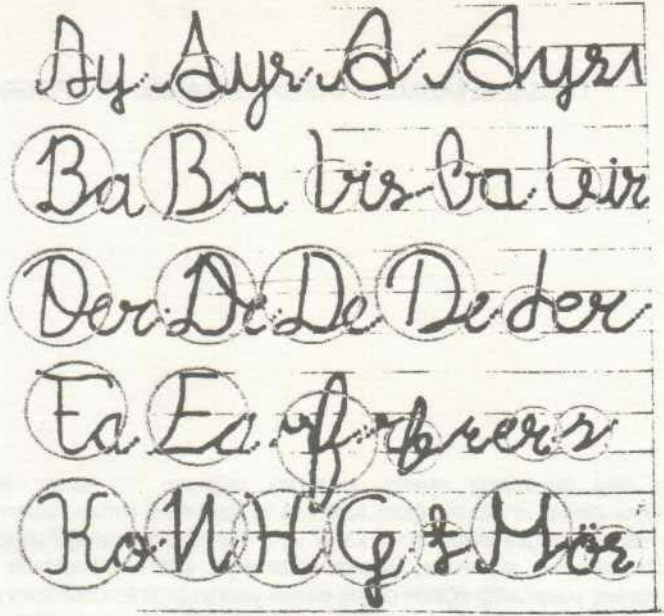 Ay Ayr A Ayr
Ba Ba bis ba bir
Der De De De der
Fa Ea f rers
Ko N H G t Mör